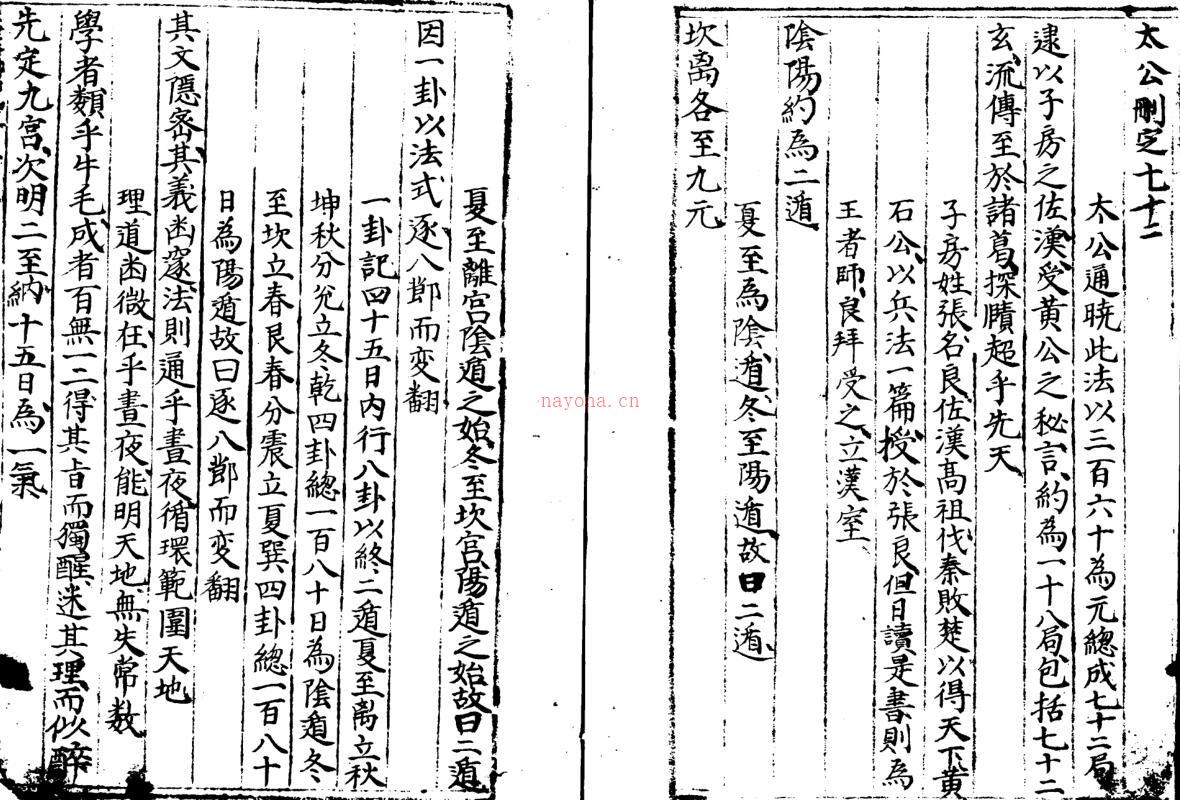 太公刪定七十二
太公通曉此法以三百六十為元總成七十二局
逮以子房之佐漢受黃公之秘言約為一十八局包括七十二
玄流傳至於諸葛探賾超乎先天
子房姓張名良佐漢高祖伐秦敗楚以得天下黃
石公以兵法一篇授於張良但日讀是書則為
王者師良拜受之立漢室
陰陽約為二遁
夏至為陰遁冬至陽遁故曰二遁
坎离各至九元
夏至離宮陰遁之始冬至坎宮陽遁之始故曰二遁
因一卦以法式逐八節而变翻
一卦記四十五日內行八卦以終二遁夏至离立秋
坤秋分兌立冬乾四卦總一百八十日為陰遁冬
至坎立春艮春分震立夏巽四卦總一百八十
日為陽遁故曰逐八節而变翻
其文隱密其義幽邃法則通乎晝夜循環範圍天地
理道幽微在乎晝夜能明天地無失常数
學者類乎牛毛成者百無一二得其旨而獨醒迷其理而似醉
先定九宮次明二至納十五日為一氣
nayona.cn